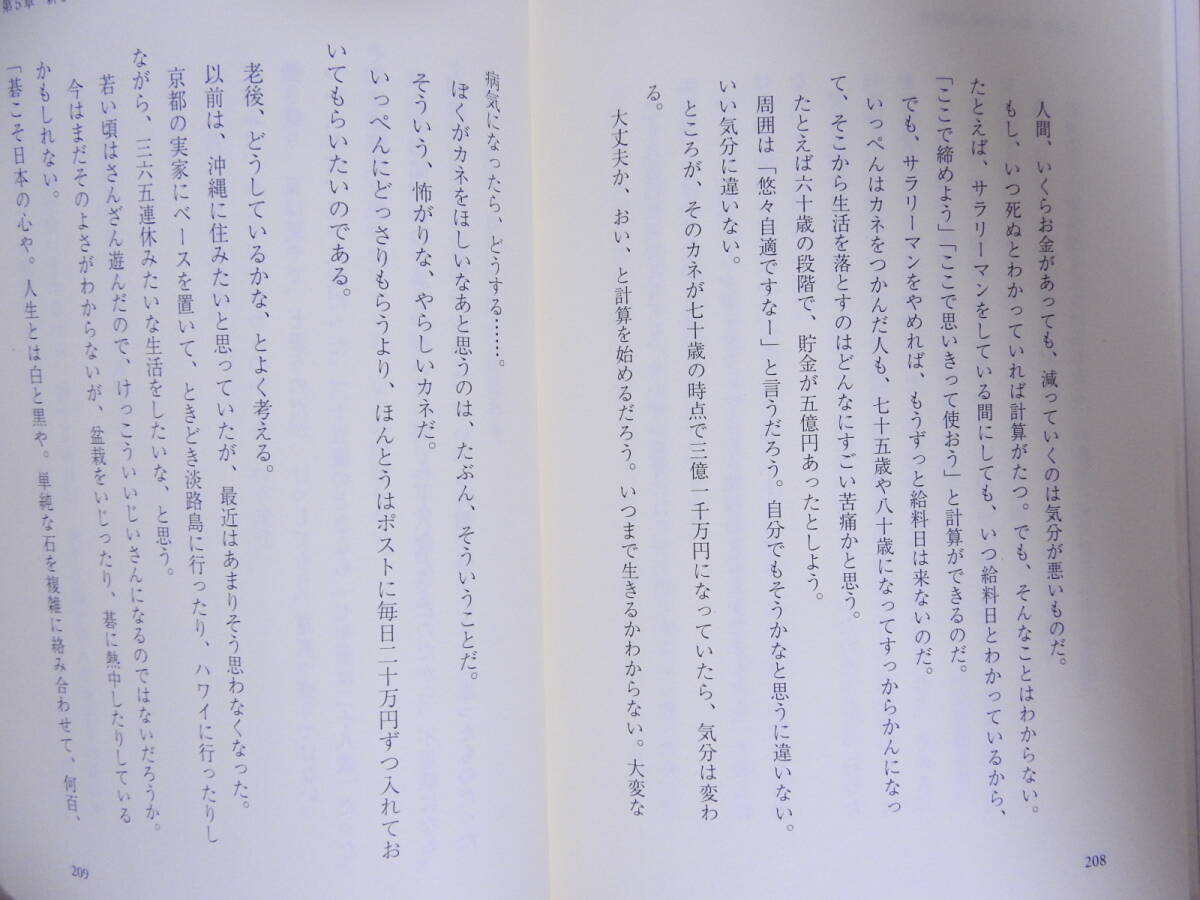 人間、いくらお金があっても、減っていくのは気分が悪いものだ。
もし、いつ死ぬとわかっていれば計算がたつ。でも、そんなことはわからない。
たとえば、サラリーマンをしている間にしても、いつ給料日とわかっているから、
「ここで締めよう」「ここで思いきって使おう」と計算ができるのだ。
でも、サラリーマンをやめれば、もうずっと給料日は来ないのだ。
いっぺんはカネをつかんだ人も、七十五歳や八十歳になってすっからかんになっ
て、そこから生活を落とすのはどんなにすごい苦痛かと思う。
たとえば六十歳の段階で、貯金が五億円あったとしよう。
周囲は「悠々自適ですなー」と言うだろう。自分でもそうかなと思うに違いない。
いい気分に違いない。
ところが、そのカネが七十歳の時点で三億一千万円になっていたら、気分は変わ
る。
大丈夫か、おい、と計算を始めるだろう。いつまで生きるかわからない。大変な
208
第5章
病気になったら、どうする……。
ぼくがカネをほしいなあと思うのは、たぶん、そういうことだ。
そういう、怖がりな、やらしいカネだ。
いっぺんにどっさりもらうより、ほんとうはポストに毎日二十万円ずつ入れてお
いてもらいたいのである。
老後、どうしているかな、とよく考える。
以前は、沖縄に住みたいと思っていたが、最近はあまりそう思わなくなった。
京都の実家にベースを置いて、ときどき淡路島に行ったり、ハワイに行ったりし
ながら、三六五連休みたいな生活をしたいな、と思う。
若い頃はさんざん遊んだので、けっこういいじいさんになるのではないだろうか。
今はまだそのよさがわからないが、盆栽をいじったり、碁に熱中したりしている
かもしれない。
「碁こそ日本の心や。人生とは白と黒や。単純な石を複雑に絡み合わせて、何百、
209